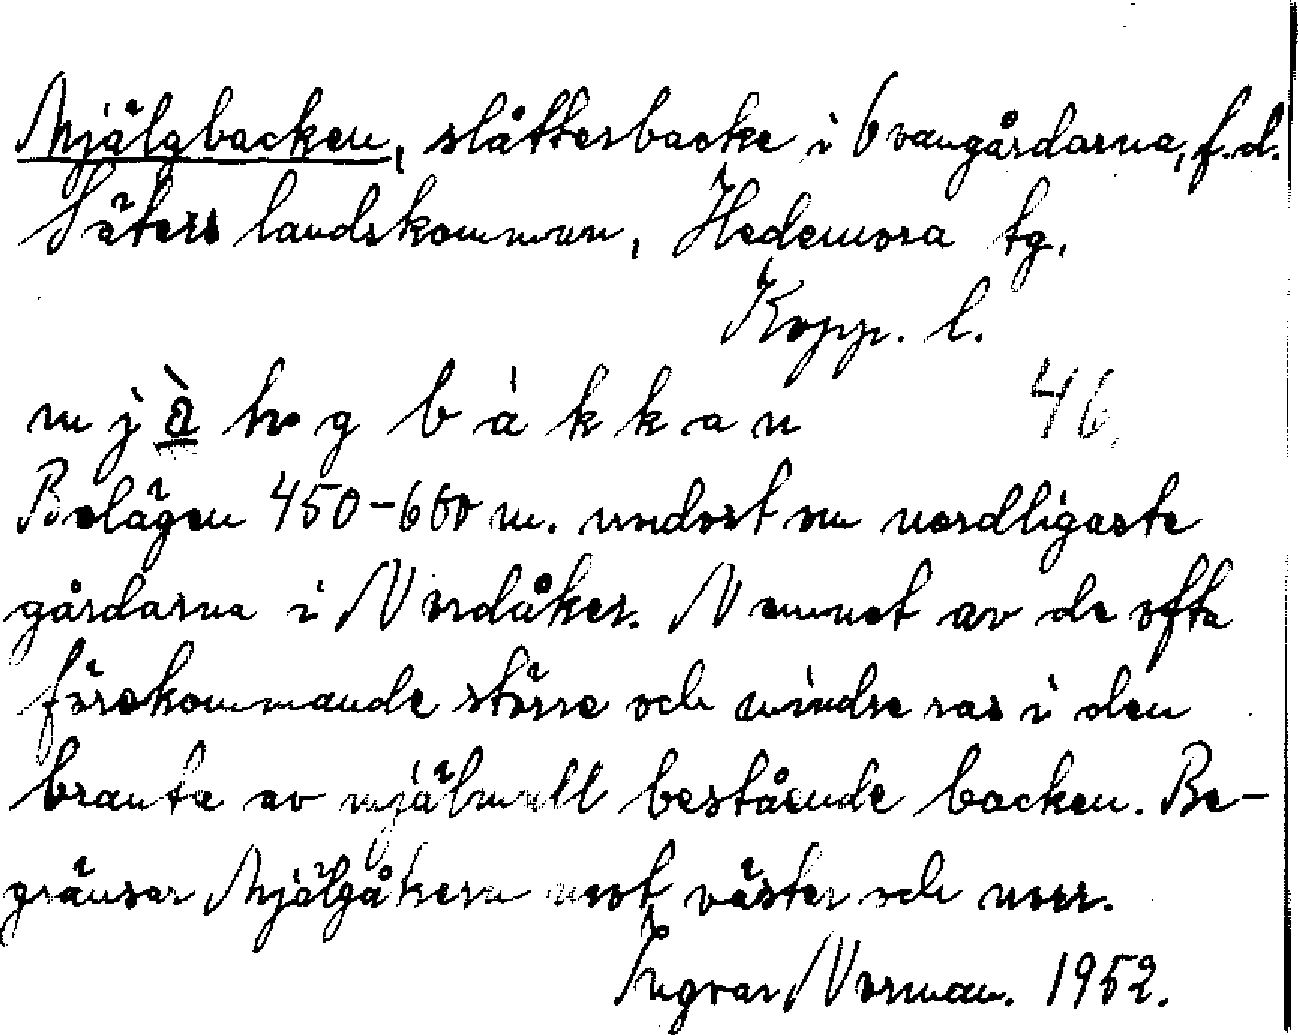 Mjälgbacken, slåtterbacke i Ovangårdarna, f.d.
Säters landskommun, Hedemora tg.
Kopp. l.
46
Belägen 450-600 m. nordost om nordligaste
gårdarna i Nordåker. Namnet av de ofta
förekommande större och mindre ras i den
branta av mjälmull bestående backen. Be-
gränsar Mjälgåkern mot väster och norr.
Ingvar Norman. 1952.